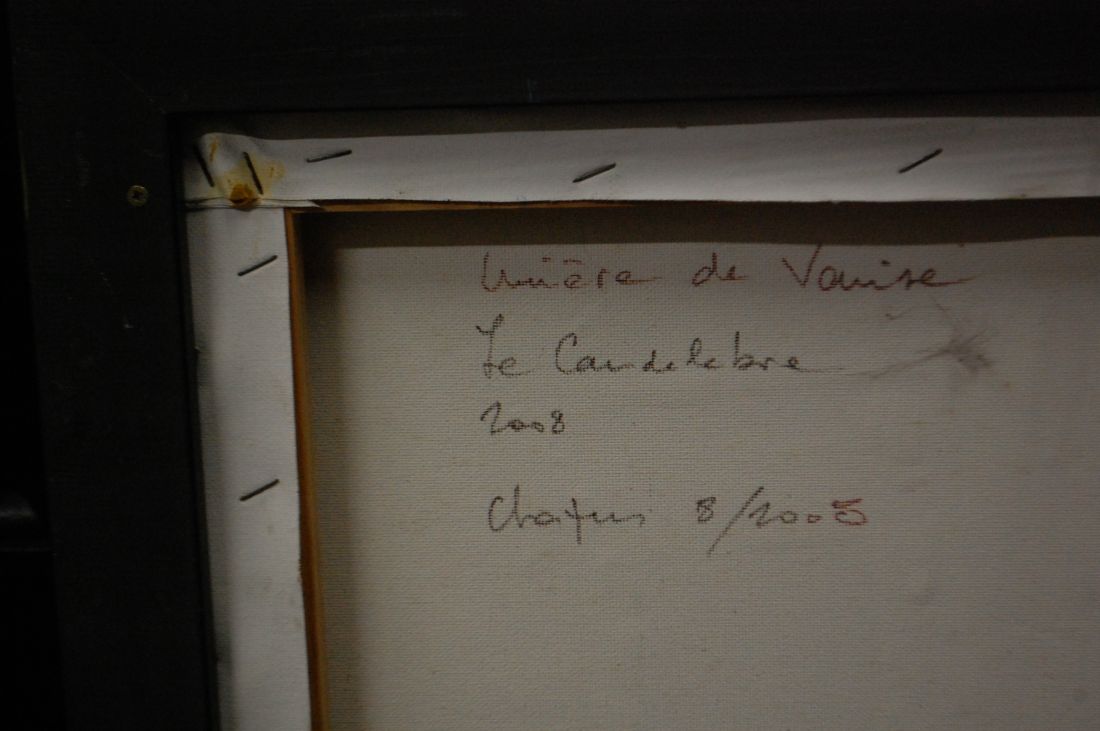 Lumière de Venise
Le Candelabre
2008
8/2005